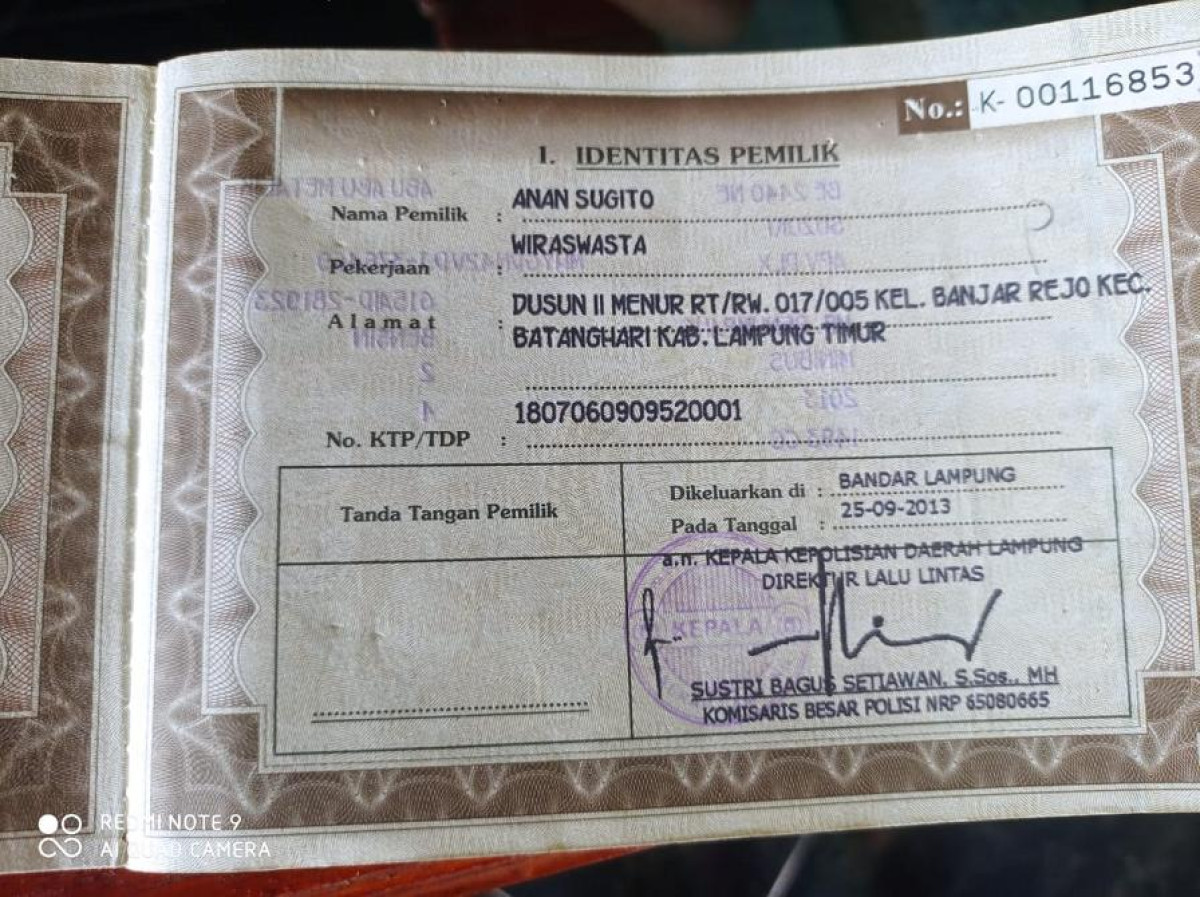 No.: K- 00116853
I. IDENTITAS PEMILIK
Nama Pemilik : ANAN SUGITO
Pekerjaan : WIRASWASTA
Alamat : DUSUN II MENUR RT/RW. 017/005 KEL. BANJAR REJO KEC.
BATANGHARI KAB. LAMPUNG TIMUR
No. KTP/TDP : 1807060909520001
Tanda Tangan Pemilik
Dikeluarkan di : BANDAR LAMPUNG
Pada Tanggal : 25-09-2013
a.n. KEPALA KEPOLISIAN DAERAH LAMPUNG
DIREKTUR LALU LINTAS
KEPALA
SUSTRI BAGUS SETIAWAN, S.Sos., MH
KOMISARIS BESAR POLISI NRP 65080665
REDMI NOTE 9
AI QUAD CAMERA